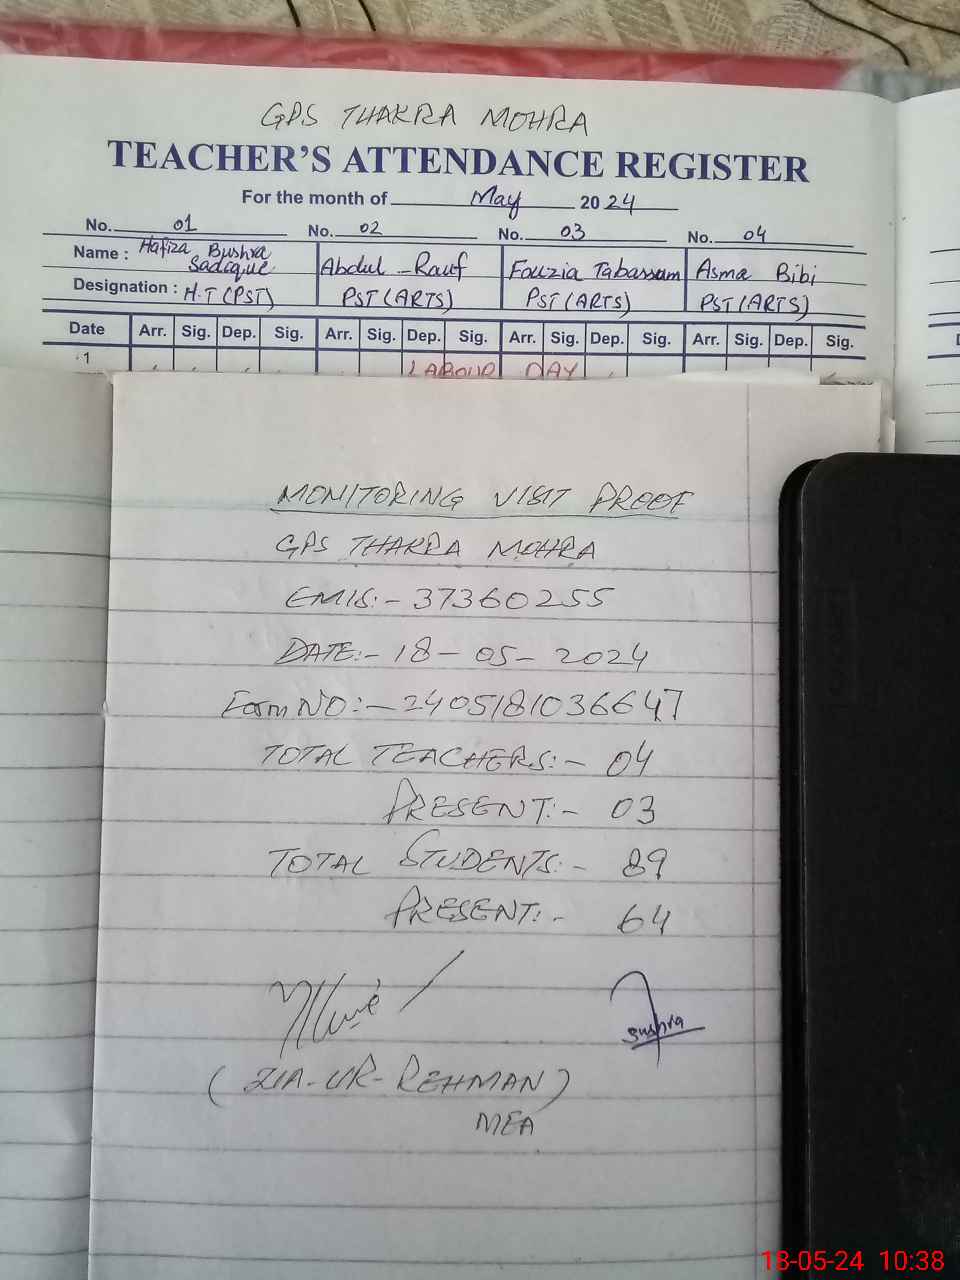 GPS THAKRA MOHRA
TEACHER'S ATTENDANCE REGISTER
For the month of May 2024
No. 01 No. 02 No. 03 No. 04
Name : Hafiza Bushra Sadique Abdul Rauf Fouzia Tabassum Asma Bibi
Designation : H.T (PST) PST (ARTS) PST (ARTS) PST (ARTS)
Date Arr. Sig. Dep. Sig. Arr. Sig. Dep. Sig. Arr. Sig. Dep. Sig. Arr. Sig. Dep. Sig.
1 LABOUR DAY
MONITORING VISIT PROOF
GPS THAKRA MOHRA
EMIS:- 37360255
DATE:- 18-05-2024
Form NO:- 2405181036647
TOTAL TEACHERS:- 04
PRESENT:- 03
TOTAL STUDENTS:- 89
PRESENT:- 64
Bushra
(ZIA-UR-REHMAN)
MEA
18-05-24 10:38